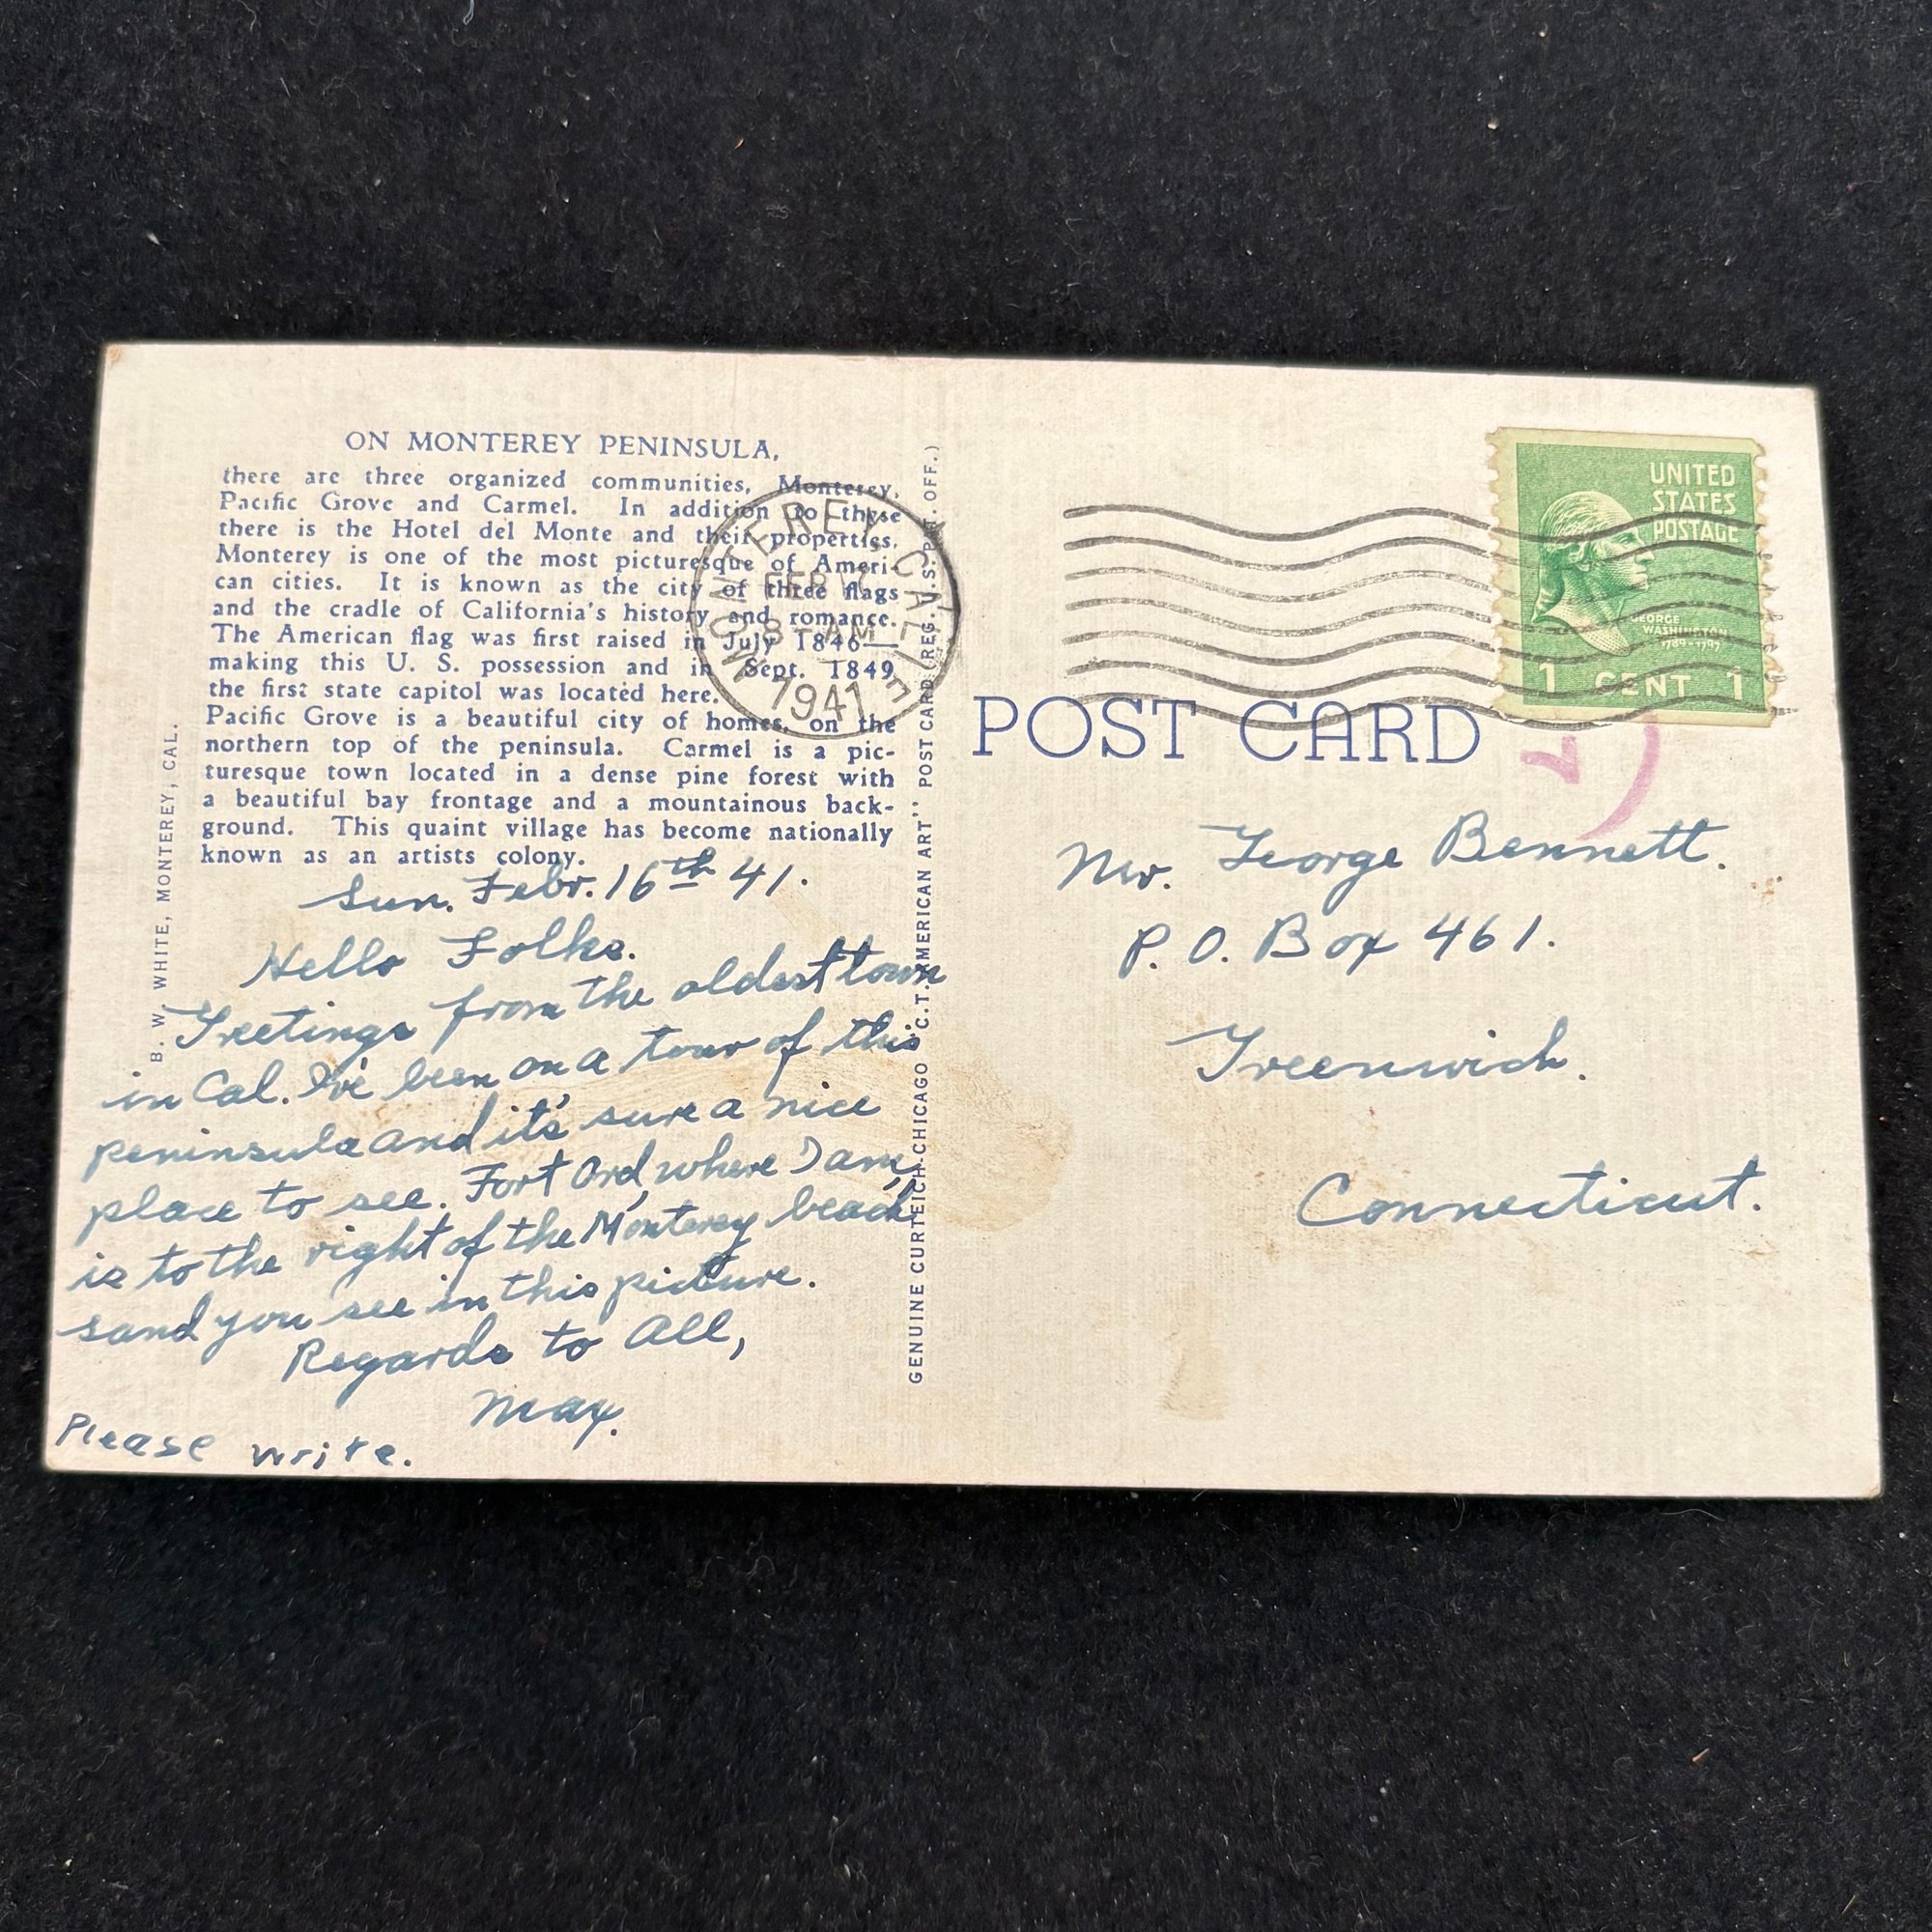 ON MONTEREY PENINSULA,
there are three organized communities, Monterey,
Pacific Grove and Carmel. In addition to these
there is the Hotel del Monte and their properties.
Monterey is one of the most picturesque of Ameri-
can cities. It is known as the city of three flags
and the cradle of California's history and romance.
The American flag was first raised in July 1846—
making this U. S. possession and in Sept. 1849
the first state capitol was located here.
Pacific Grove is a beautiful city of homes, on the
northern top of the peninsula. Carmel is a pic-
turesque town located in a dense pine forest with
a beautiful bay frontage and a mountainous back-
ground. This quaint village has become nationally
known as an artists colony.
B. W. WHITE, MONTEREY, CAL.
Sun. Febr. 16th 41.
Hello Folks.
Greetings from the oldest town
in Cal. I've been on a tour of this
peninsula and it's sure a nice
place to see. Fort Ord, where I am,
is to the right of the Monterey beach
sand you see in this picture.
Regards to All,
Max.
Please write.
GENUINE CURTEICH-CHICAGO "C.T. AMERICAN ART" POST CARD (REG. U.S. PAT. OFF.)
MONTEREY CALIF
FEB 17
8-AM
1941
POST CARD
UNITED
STATES
POSTAGE
GEORGE
WASHINGTON
1789-1797
1 CENT 1
Mr. George Bennett.
P. O. Box 461.
Greenwich.
Connecticut.